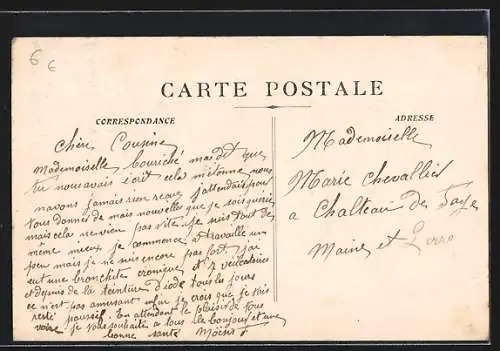 6 6
CARTE POSTALE
CORRESPONDANCE
ADRESSE
Chère Cousine
Mademoiselle bouriché mas dit que
tu nous avais écrit cela m'étonne nous
navons jamais rien reçue j'attendais pour
vous donner de mais nouvelles que je soit guerie
mais cela ne vien pas vite je suis tout de
même mieux je commence a travaille un
peu mais je ne suis encore pas fort jai
eut une bronchite cronique et 7 vésicatoires
et depuis de la teinture d'iode tous les jours
ce n'est pas amusant enfin je crois que je suis
resté poussif. En attendant le plaisir de vous
voire je vous souhaite a tous le bonjour et une
bonne santé Moïse
Mademoiselle
Marie Chevallier
a Chateau de
Maine et Loire